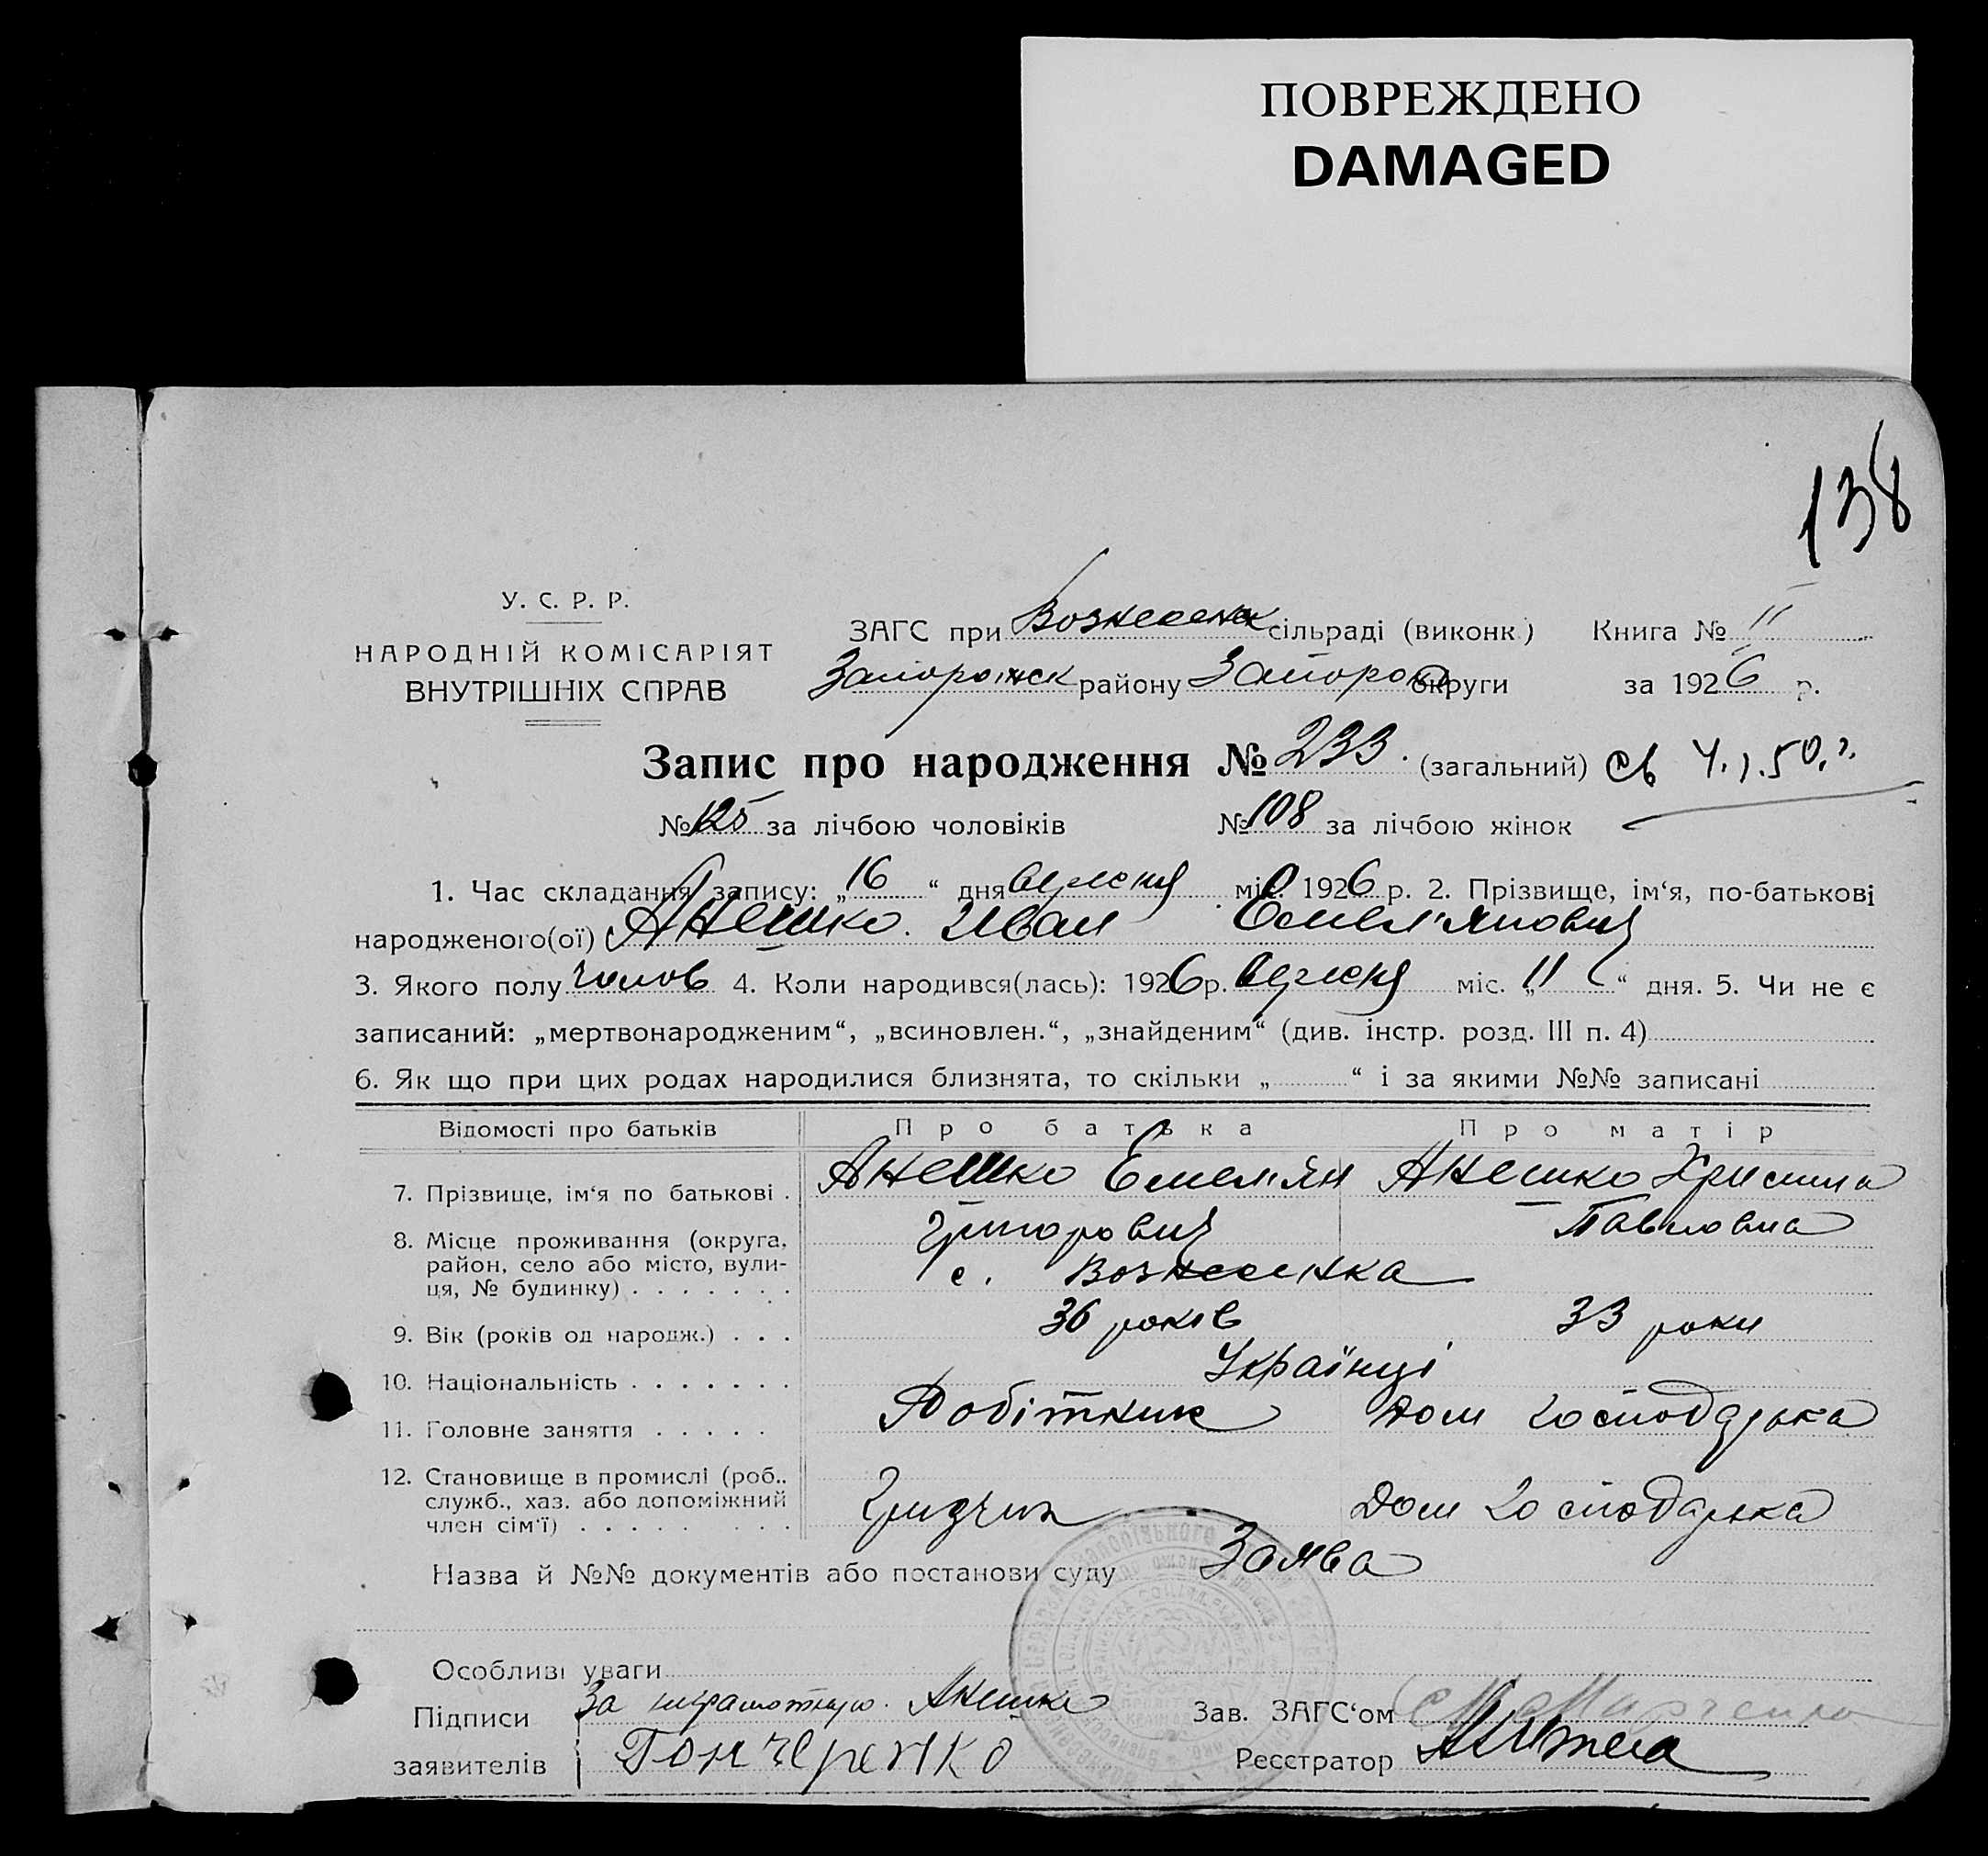 ПОВРЕЖДЕНО
DAMAGED
138
У. С. Р. Р.
НАРОДНІЙ КОМІСАРІЯТ
ВНУТРІШНІХ СПРАВ
ЗАГС при Вознесенск сільраді (виконк.) Книга № II
Запорожск району Запорож округи за 1926 р.
Запис про народження № 233. (загальний) св 4.1.50.
№ 125 за лічбою чоловіків № 108 за лічбою жінок
1. Час складання запису: „16“ дня вересня міс. 1926 р. 2. Прізвище, ім‘я, по-батькові
народженого(ої) Анешко. Иван Емел'янович
3. Якого полу чолов 4. Коли народився(лась): 1926 р. вересня міс. „11“ дня. 5. Чи не є
записаний: „мертвонародженим“, „всиновлен.“, „знайденим“ (див. інстр. розд. III п. 4)
6. Як що при цих родах народилися близнята, то скільки „ “ і за якими №№ записані
Відомості про батьків Про батька Про матір
7. Прізвище, ім‘я по батькові . Анешко Емел'ян Анешко Христина
Григорович Павловна
8. Місце проживання (округа,
район, село або місто, вули-
ця, № будинку) . . . . . . . с. Вознесенка
9. Вік (років од народж.) . . . 36 років 33 роки
10. Національність . . . . . . . Українці
11. Головне заняття . . . . . Робітник Дом господарька
12. Становище в промислі (роб..
служб., хаз. або допоміжний
член сім‘ї) . . . . . . . . Дом господарька
Назва й №№ документів або постанови суду Заява
Особливі уваги
Підписи За неграмотную. Анешко Зав. ЗАГС‘ом Марченко
заявителів Гончеренко Реєстратор